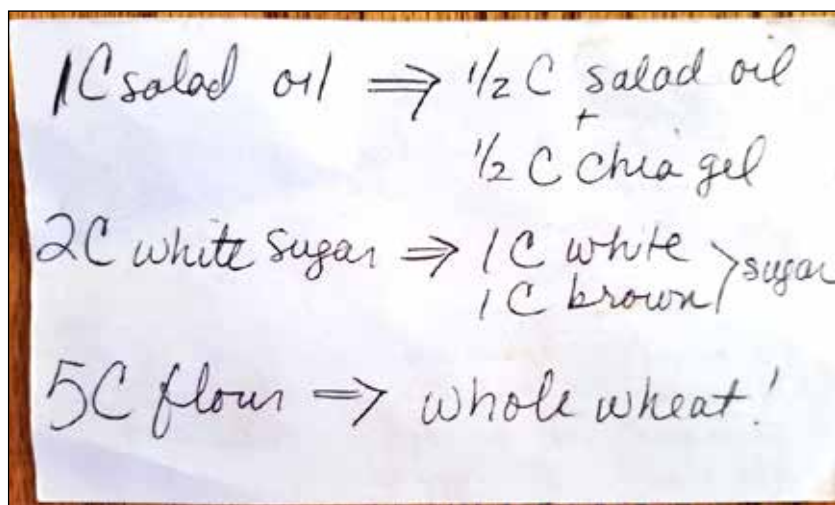 1C salad oil ⇒ 1/2 C salad oil
+
1/2 C chia gel
2C white sugar ⇒ 1 C white
1 C brown > sugar
5C flour ⇒ whole wheat!